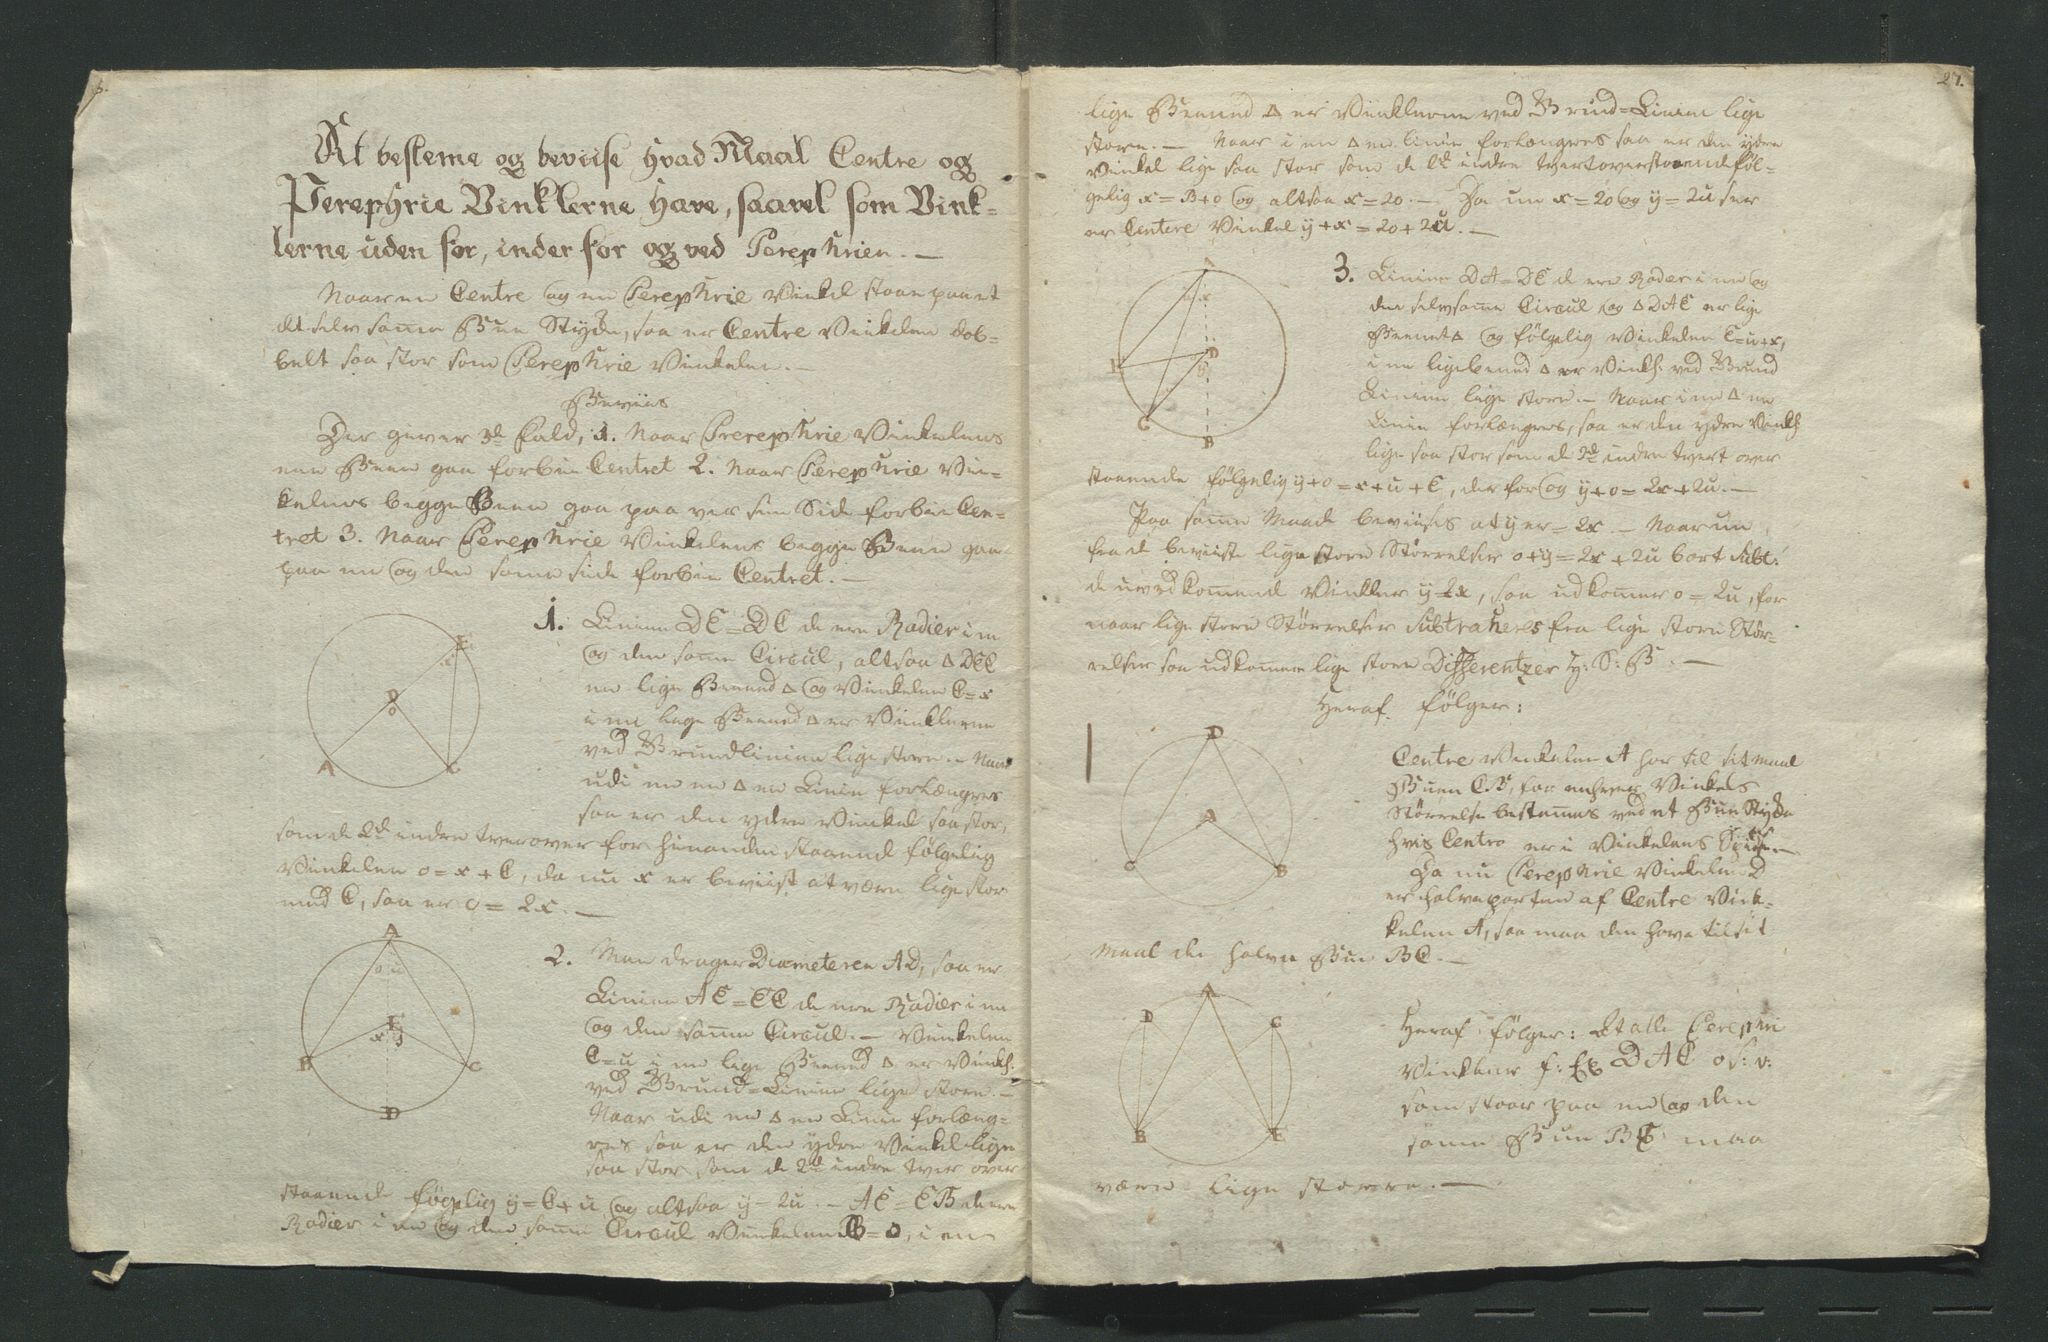 At besteme og beviise hvad Maal Centre og
Perephrie Vinklerne have, saavel som Vink-
lerne uden for, inder for og ved Perephrien. —
Naar en Centre og en Perephrie Vinkel staar paa et
det selv samme Bue Stykke, saa er Centre Vinkelen dob-
belt saa stor som Perephrie Vinkelen. —
Beviis
Der giver 3de Fald, 1. Naar Prerephrie Vinkelens
ene Been gaa forbie Centret 2. Naar Perephrie Vin-
kelens begge Been gaa paa ver sin Side forbie Cen-
tret 3. Naar Perephrie Vinkelens begge Been gaa
paa en og den samme side forbie Centret. —
1. Linien DE = DC de ere Radier i en
og den samme Circul, altsaa ∆ DEC
en lige Beened ∆ og Vinkelen C = x
i en lige Beened ∆ er Vinklerne
ved Grundlinien lige store. — Naar
udi en en ∆ en Linie forlænges
saa er den ydre Vinkel saa stor,
som de 2de indre tverover for hinanden staaende følgelig
Vinkelen o = x + C, da nu x er beviist at være lige stor
med C, saa er o = 2x. —
2. Man drager Diameteren AD, saa er
Linien AE = EC de ere Radier i en
og den samme Circul. — Vinkelen
C = u i en lige Beened ∆ er Vinkl:
ved Grund-Linien lige store. —
Naar udi en ∆ en Linie forlæng-
es saa er den ydre Vinkel lige
saa stor som de 2de indre tver over
staaende føgelig y = C + u og altsaa y = 2u. — AE = EB de ere
Radier i en og den samme Circul Vinkelen B = o, i en
27.
lige Beened ∆ er Vinklerne ved Grund-Linien lige
store. — Naar i en ∆ en linie forlænges saa er den ydre
Vinkel lige saa stor som de 2de indre tvertoverstaaende føl-
gelig x = B + o og altsaa x = 2o. — Da nu x = 2o og y = 2u saa
er Centere Vinkel y + x = 2o + 2u. —
3. Linien DA = DC de ere Radier i en og
den selvsamme Circul, og ∆ DAC er lige
Beenet ∆ og følgelig Vinkelen C = u + x,
i en ligebeened ∆ er Vinkl: ved Grund
Linien lige store. — Naar i en ∆ en
Linie forlænges, saa er den ydre Vinkl
lige saa stor som de 2de indre tvert over
staaende følgelig y + o = x + u + C, der for og y + o = 2x + 2u. —
Paa samme Maade beviises at y er = 2x. — Naar nu
fra de beviiste lige store Størrelser o + y = 2x + 2u bort subt:
de uvedkomende Vinkler y = 2x, saa udkommer o = 2u, for
naar lige store Størrelser subtraheres fra lige store Stør-
relser saa udkommer lige store Differentzer H: S: B. —
Heraf følger:
Centre Vinkelen A har til sit maal
Buen CB, for enhver Vinkels
Størrelse bestemmes ved et Bue Stykke
hvis Centro er i Vinkelens Spidse. —
Da nu Perephrie Vinkelen D
er halveparten af Centre Vin-
kelen A, saa maa den have til sit
Maal den halve Bue BC. —
Heraf følger: At alle Perephri
Vinkler f: Ex DAC os: v:
som staar paa en og den
samme Bue BE maa
være lige storre. —